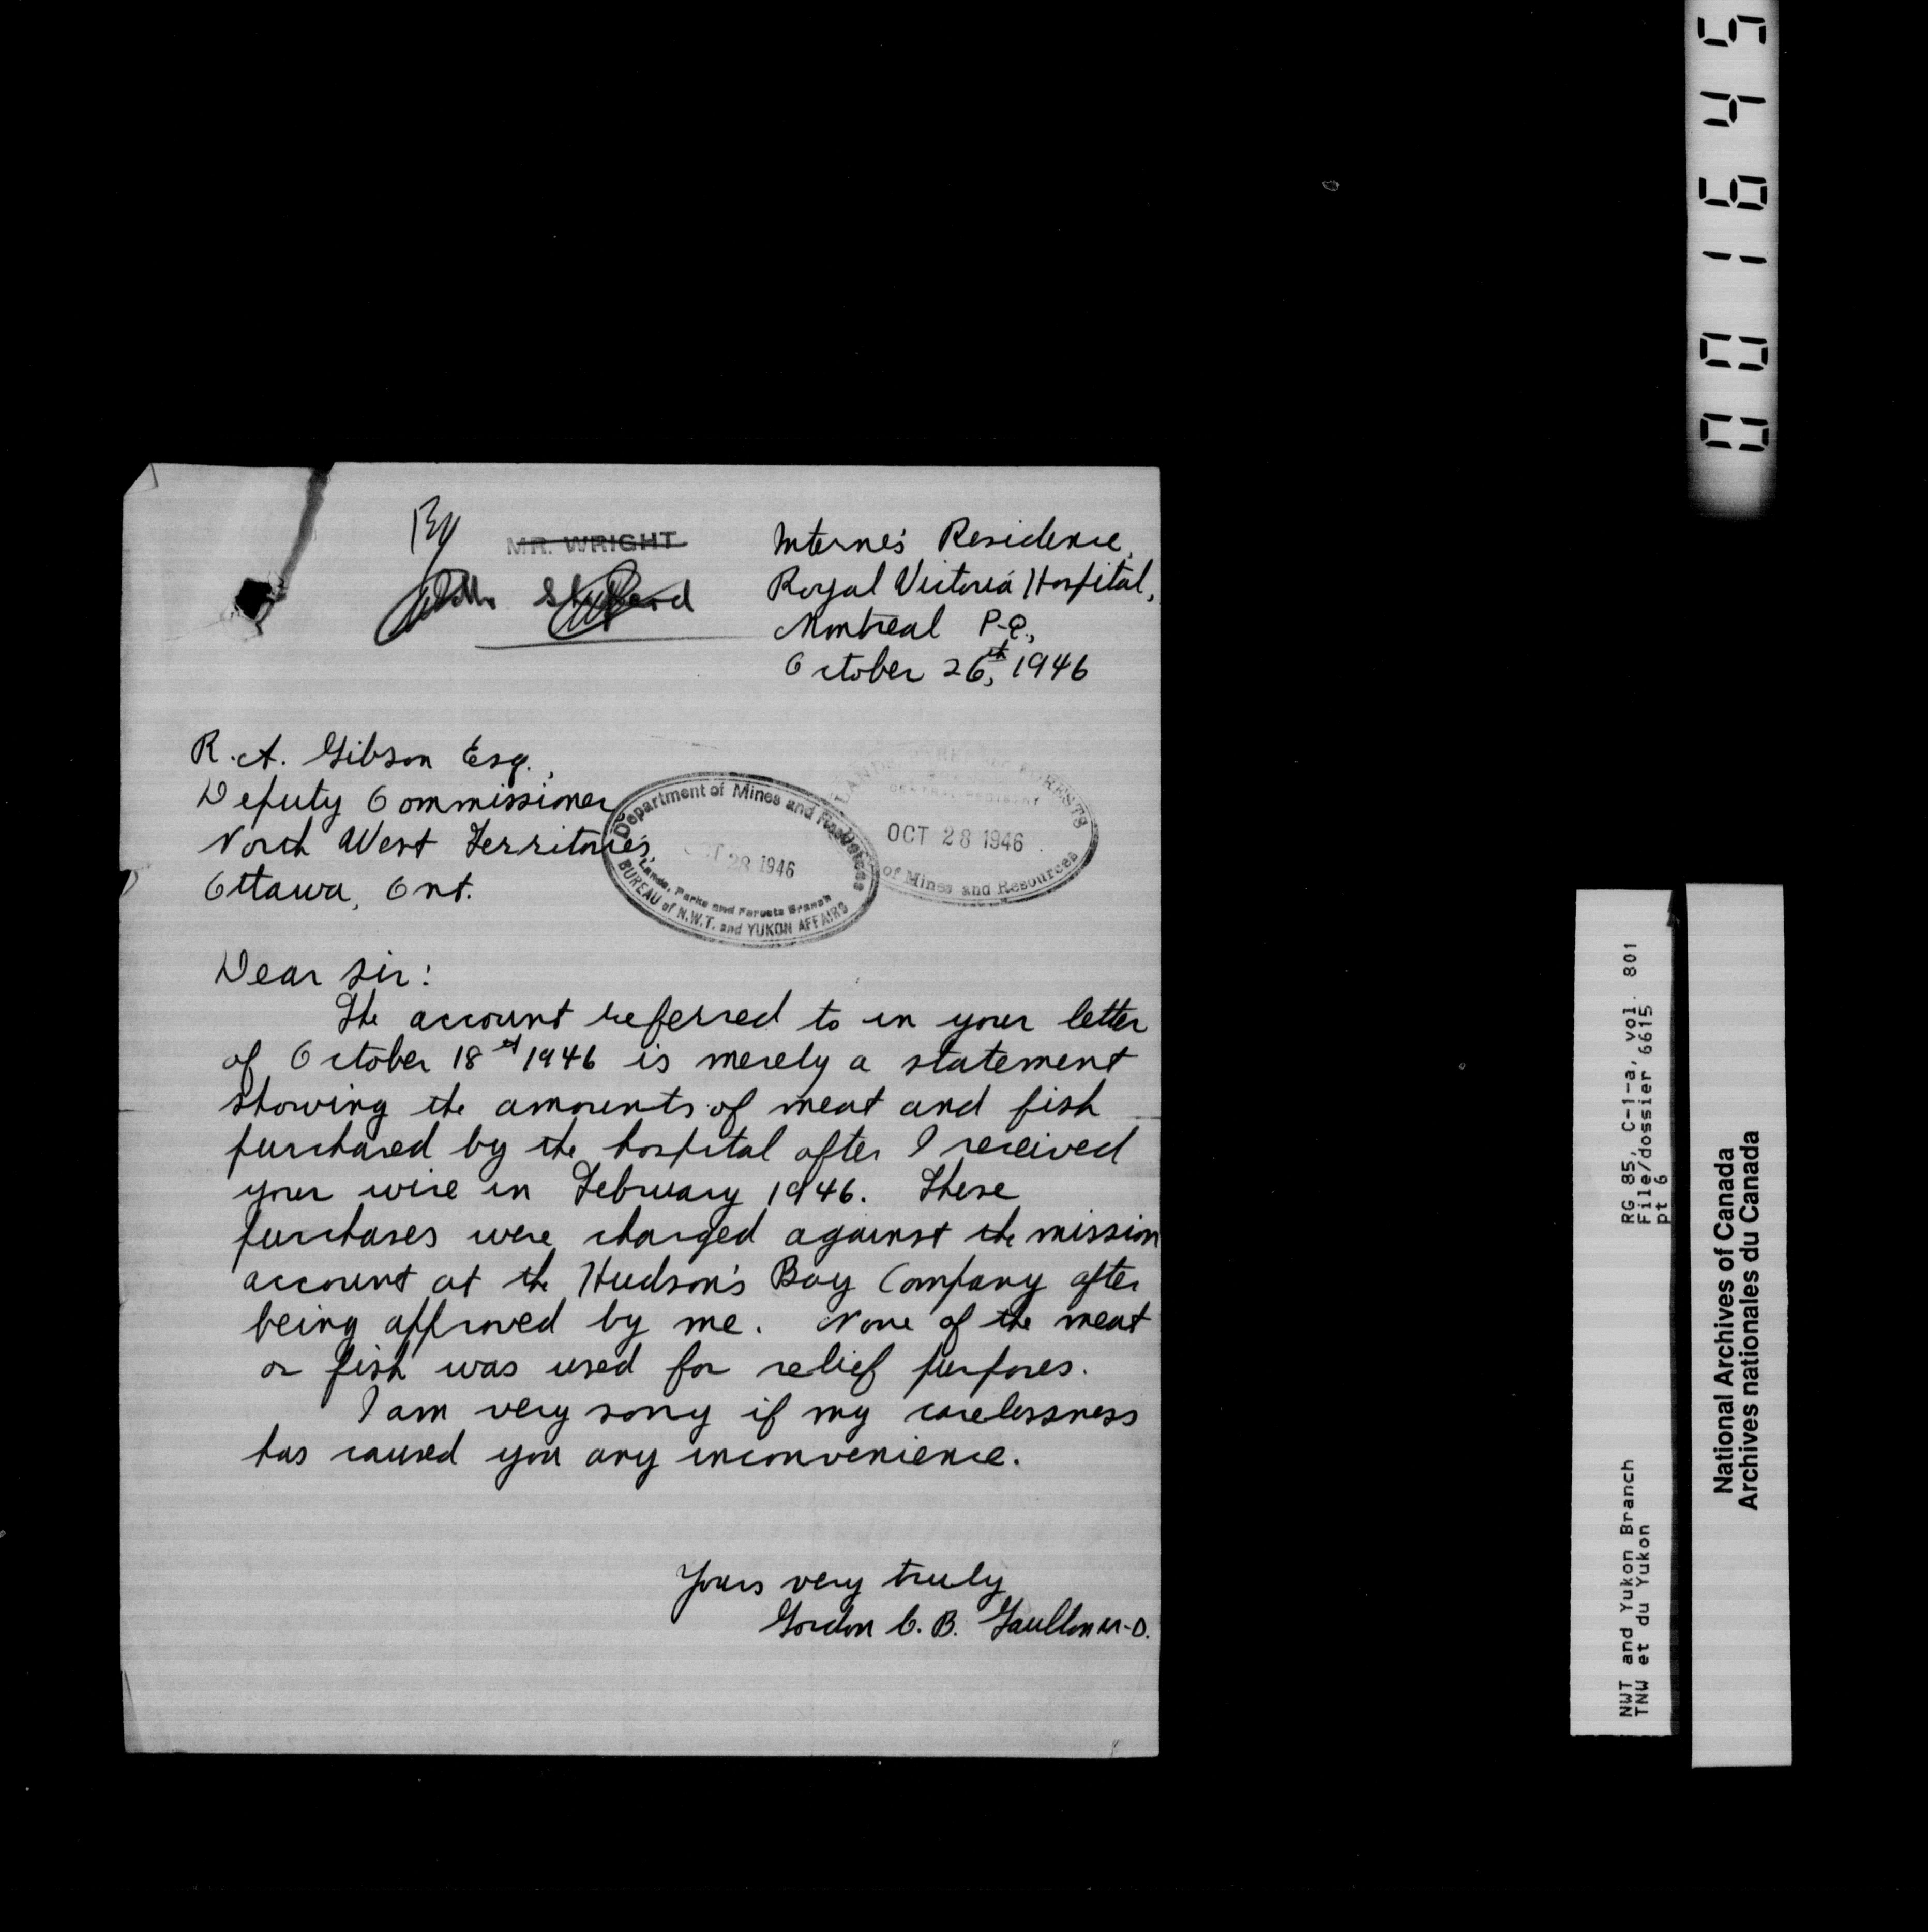 001645
By
MR. WRIGHT
Interne's Residence,
Royal Victoria Hospital,
Montreal P.Q.,
October 26th, 1946
R. A. Gibson Esq.,
Deputy Commissioner
North West Territories,
Ottawa, Ont.
Department of Mines and Resources
OCT 28 1946
Lands, Parks and Forests Branch
BUREAU of N.W.T. and YUKON AFFAIRS
LANDS PARKS AND FORESTS
CENTRAL REGISTRY
OCT 28 1946
of Mines and Resources
Dear Sir:
The account referred to in your letter
of October 18th 1946 is merely a statement
showing the amounts of meat and fish
purchased by the hospital after I received
your wire in February 1946. These
purchases were charged against the mission
account at the Hudson's Bay Company after
being approved by me. None of the meat
or fish was used for relief purposes.
I am very sorry if my carelessness
has caused you any inconvenience.
Yours very truly
Gordon C. B. M.D.
RG 85, C-1-a, vol. 801
File/dossier 6615
pt 6
NWT and Yukon Branch
TNW et du Yukon
National Archives of Canada
Archives nationales du Canada